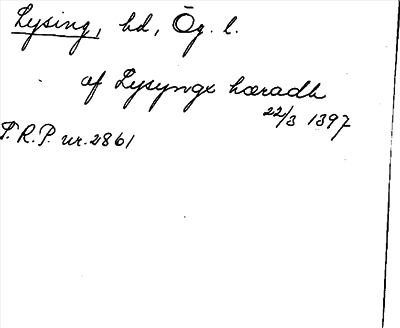 Lysing, hd, Ög. l.
af Lysynge hæradh
22/3 1397
P.R.P. nr. 2861